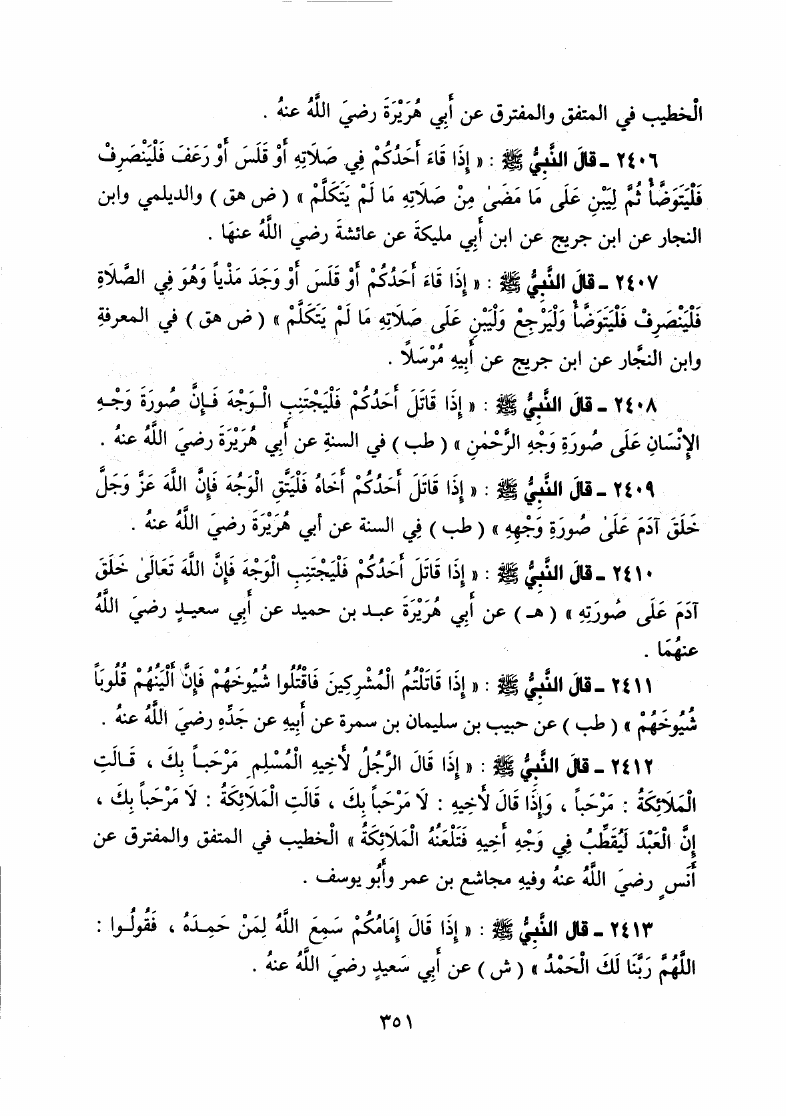 الْخطيب في المتفق والمفترق عن أَبِي هُرَيْرَةَ رضيَ اللَّهُ عنهُ .
٢٤٠٦ ـ قالَ النَّبِيُّ ﷺ : « إِذَا قَاءَ أَحَدُكُمْ فِي صَلَاتِهِ أَوْ قَلَسَ أَوْ رَعَفَ فَلْيَنْصَرِفْ
فَلْيَتَوَضَّأْ ثُمَّ لِيَبْنِ عَلَى مَا مَضَىٰ مِنْ صَلَاتِهِ مَا لَمْ يَتَكَلَّمْ » ( ض هق ) والديلمي وابن
النجار عن ابن جريج عن ابن أَبي مليكةَ عن عائشةَ رضيَ اللَّهُ عنهَا .
٢٤٠٧ ـ قالَ النَّبِيُّ ﷺ : « إِذَا قَاءَ أَحَدُكُمْ أَوْ قَلَسَ أَوْ وَجَدَ مَذْياً وَهُوَ فِي الصَّلَاةِ
فَلْيَنْصَرِفْ فَلْيَتَوَضَّأْ وَلْيَرْجِعْ وَلْيَبْنِ عَلَى صَلَاتِهِ مَا لَمْ يَتَكَلَّمْ » ( ض هق ) في المعرفةِ
وابن النجَّار عن ابن جريج عن أَبِيهِ مُرْسَلاً .
٢٤٠٨ ـ قالَ النَّبِيُّ ﷺ : « إِذَا قَاتَلَ أَحَدُكُمْ فَلْيَجْتَنِبِ الْوَجْهَ فَإِنَّ صُورَةَ وَجْهِ
الإِنْسَانِ عَلَى صُورَةِ وَجْهِ الرَّحْمٰنِ » ( طب ) في السنةِ عن أَبِي هُرَيْرَةَ رضيَ اللَّهُ عنهُ .
٢٤٠٩ ـ قالَ النَّبِيُّ ﷺ : « إِذَا قَاتَلَ أَحَدُكُمْ أَخَاهُ فَلْيَتَّقِ الْوَجْهَ فَإِنَّ اللَّهَ عَزَّ وَجَلَّ
خَلَقَ آدَمَ عَلَىٰ صُورَةِ وَجْهِهِ » ( طب ) فِي السنة عن أبي هُرَيْرَةَ رضيَ اللَّهُ عنهُ .
٢٤١٠ ـ قالَ النَّبِيُّ ﷺ : « إِذَا قَاتَلَ أَحَدُكُمْ فَلْيَجْتَنِبِ الْوَجْهَ فَإِنَّ اللَّهَ تَعَالَىٰ خَلَقَ
آدَمَ عَلَى صُورَتِهِ » ( هـ ) عن أَبِي هُرَيْرَةَ عبد بن حميد عن أَبِي سعيدٍ رضيَ اللَّهُ
عنهُمَا .
٢٤١١ ـ قالَ النَّبِيُّ ﷺ : « إِذَا قَاتَلْتُمُ الْمُشْرِكِينَ فَاقْتُلُوا شُيُوخَهُمْ فَإِنَّ أَلْيَنَهُمْ قُلُوباً
شُيُوخُهُمْ » ( طب ) عن حبيب بن سليمان بن سمرة عن أَبِيهِ عن جَدِّهِ رضيَ اللَّهُ عنهُ .
٢٤١٢ ـ قالَ النَّبِيُّ ﷺ : « إِذَا قَالَ الرَّجُلُ لأَخِيهِ الْمُسْلِمِ مَرْحَباً بِكَ ، قَالَتِ
الْمَلَائِكَةُ : مَرْحَباً ، وَإِذَا قَالَ لأَخِيهِ : لَا مَرْحَباً بِكَ ، قَالَتِ الْمَلَائِكَةُ : لَا مَرْحَباً بِكَ ،
إِنَّ الْعَبْدَ لَيُقَطِّبُ فِي وَجْهِ أَخِيهِ فَتَلْعَنُهُ الْمَلَائِكَةُ » الْخطيب في المتفق والمفترق عن
أَنَسٍ رضيَ اللَّهُ عنهُ وفيهِ مجاشع بن عمر وأَبُو يوسف .
٢٤١٣ ـ قالَ النَّبِيُّ ﷺ : « إِذَا قَالَ إِمَامُكُمْ سَمِعَ اللَّهُ لِمَنْ حَمِدَهُ ، فَقُولُوا :
اللَّهُمَّ رَبَّنَا لَكَ الْحَمْدُ » ( ش ) عن أَبِي سَعِيدٍ رضيَ اللَّهُ عنهُ .
٣٥١